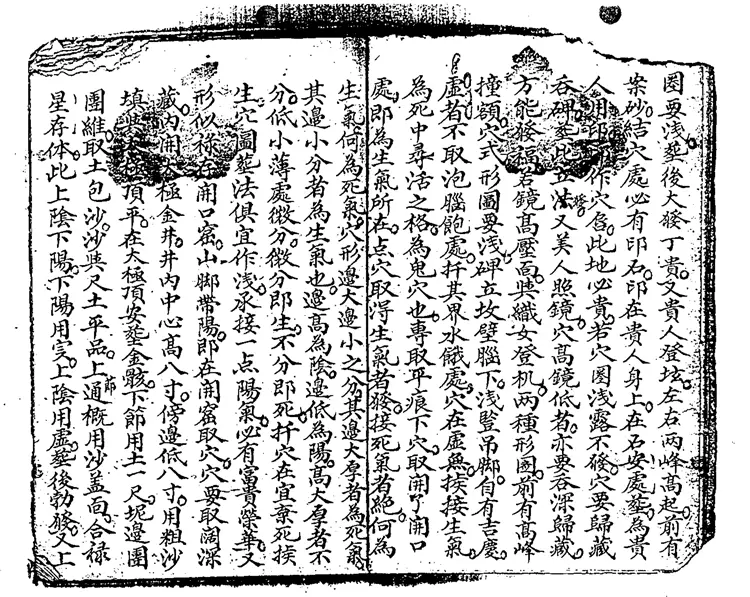 圈要浅塟後大發丁貴又貴人登垓左右兩峰髙起前有
案砂結穴處必有印石印在貴人身上在石安處塟為貴
人用印作穴名此地必貴若穴圏浅露不發穴要歸藏
吞碑至此立法又美人照鏡穴髙鏡低者亦要吞深歸藏
方能發福若鏡髙壓面與織女登机兩種形圖前有髙峰
撞額穴式形圖要浅碑立坟壁腦下浅登吊脚自有吉慶
虚者不取泡腦飽處扦其界水餓處穴在虚無挨接生氣
為死中尋活之格為鬼穴也專取平痕下穴取開了開口
處即為生氣所在点穴取淂生氣者發接死氣者絶何為
生氣何為死氣穴形邉大邉小之分其邉大厚者為死氣
其邉小分者為生氣也邉髙為陰邉低為陽髙大厚者不
分低小薄處微分微分即生不分即死扦穴在宜棄死挨
生穴圖塟法俱宜作浅承接一点陽氣必有富貴榮華又
形似禄在開口窩山脚帶陽即在開窩取穴穴要取濶深
藏内開極金井井内中心髙八寸傍邉低八寸用粗沙
填其頂平在太極頂安塟金骸下節用土一尺坭邉圍
團維取土包沙沙與尺土平品上節通概用沙盖面合禄
星存体此上陰下陽下陽用实上陰用虚塟後勃發又上